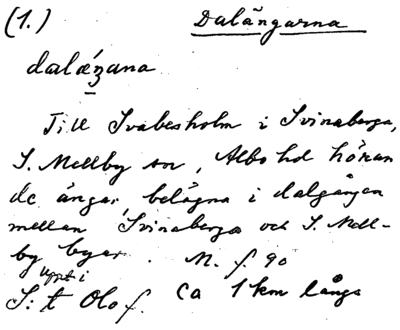 (1.) Dalängarna
dalæʒana
Till Svabesholm i Svinaberga,
S. Mellby sn, Albo hd höran
de ängar, belägna i dalgången
mellan Svinaberga och S. Mell-
by byar. M. f. 90
Uppt i
S:t Olof. Ca 1 km långa